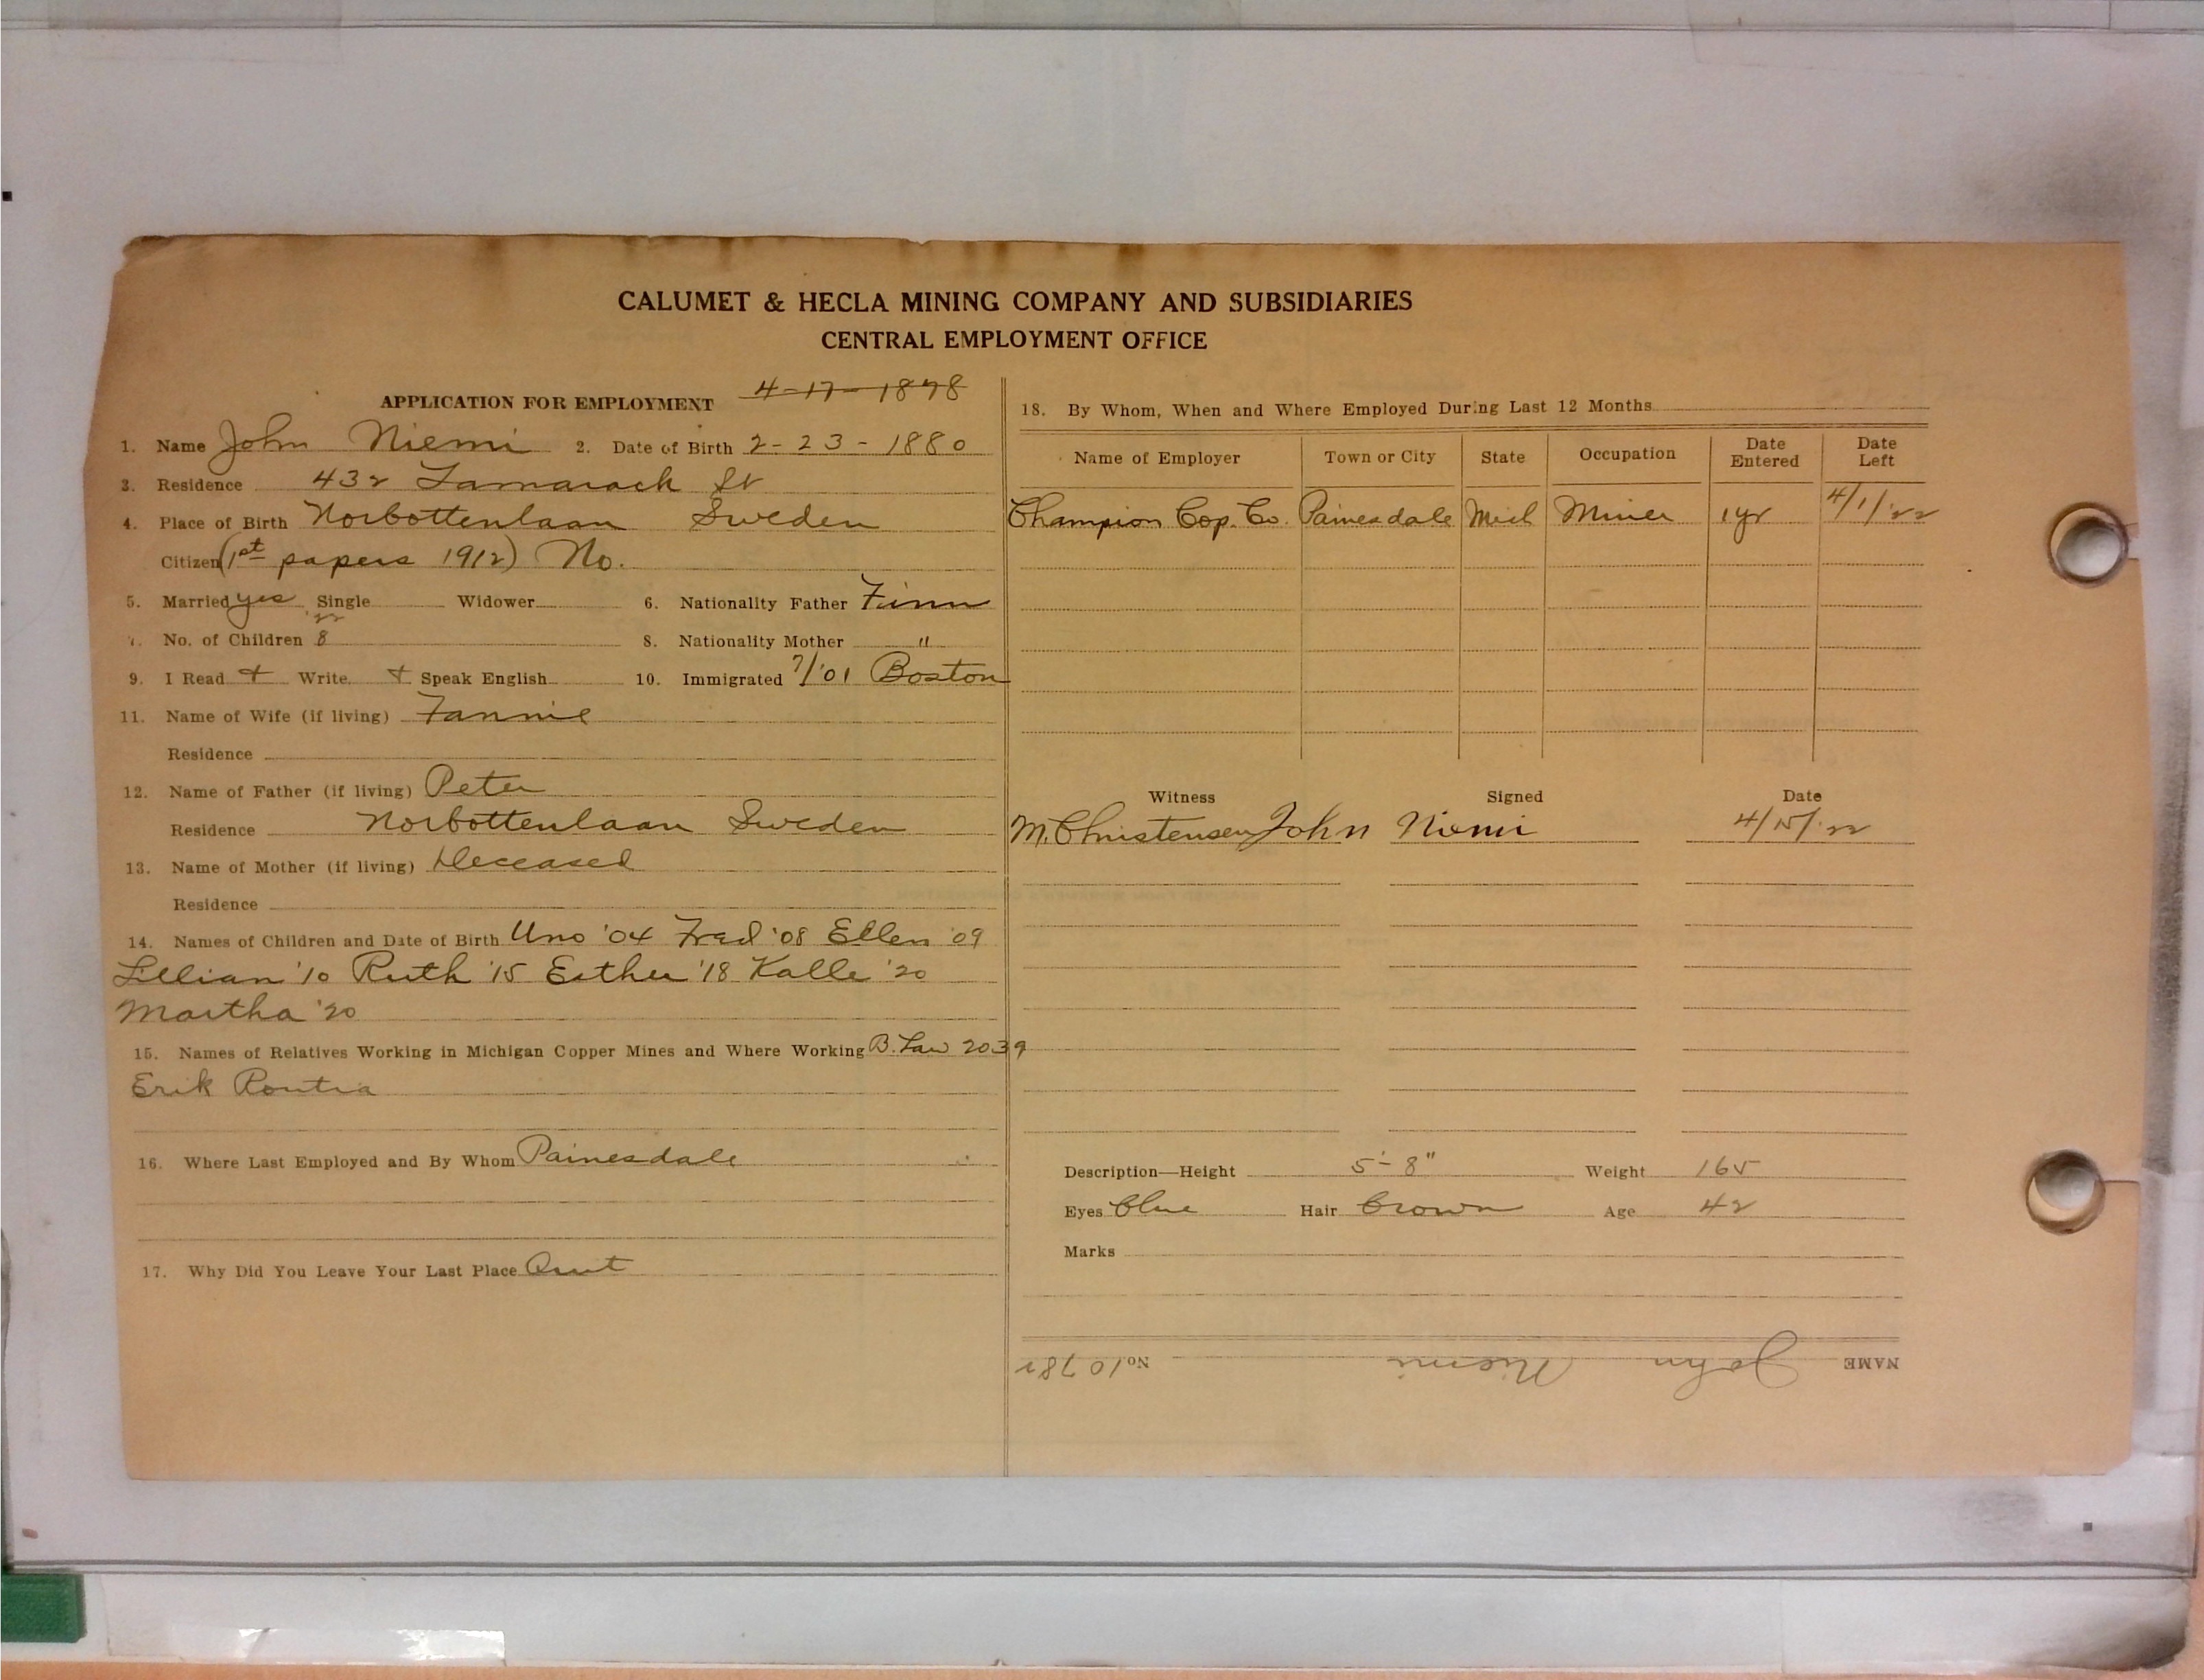 CALUMET & HECLA MINING COMPANY AND SUBSIDIARIES
CENTRAL EMPLOYMENT OFFICE
APPLICATION FOR EMPLOYMENT 4-17-1878
1. Name John Niemi 2. Date of Birth 2-23-1880
3. Residence 432 Tamarack St
4. Place of Birth Norbottenlaan Sweden
Citizen (1st papers 1912) No.
5. Married yes Single Widower 6. Nationality Father Finn
7. No. of Children 8 8. Nationality Mother "
9. I Read + Write + Speak English 10. Immigrated 7/'01 Boston
11. Name of Wife (if living) Fannie
Residence
12. Name of Father (if living) Peter
Residence Norbottenlaan Sweden
13. Name of Mother (if living) Deceased
Residence
14. Names of Children and Date of Birth Uno '04 Fred '08 Ellen '09
Lillian '10 Ruth '15 Esther '18 Kalle '20
Martha '20
15. Names of Relatives Working in Michigan Copper Mines and Where Working B. Law 2039
Erik Rontia
16. Where Last Employed and By Whom Painesdale
17. Why Did You Leave Your Last Place Quit
18. By Whom, When and Where Employed During Last 12 Months
Name of Employer Town or City State Occupation Date Entered Date Left
Champion Cop. Co. Painesdale Mich Miner 1 yr 4/1/'22
Witness Signed Date
M. Christensen John Niemi 4/15/'22
Description—Height 5'-8" Weight 165
Eyes Blue Hair Brown Age 42
Marks
NAME John Niemi No. 10782